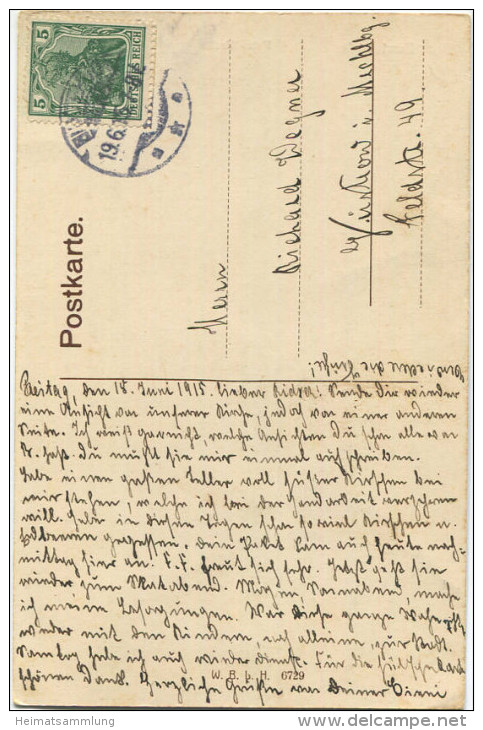 5 5
DEUTSCHES REICH
19.6.
Postkarte.
Herrn
Richard Wegner
Güstrow i. Mecklbg.
Feldstr. 49
Freitag, den 18. Juni 1915. Lieber Sende Dir wieder
eine Ansicht von unserer Kirche, jedoch von einer anderen
Seite. Ich weiß garnicht, welche Ansichten Du schon alle von
hast. Du mußt sie mir einmal aufschreiben.
Habe einen großen Teller voll süßer Kirschen bei
mir stehen, welche ich bei der Handarbeit verzehren
will. Habe in diesen Tagen schon so viel Kirschen u.
Erdbeeren gegessen. Dein Paket kam auf heute nach-
mittag hier an. freut sich sehr. Jetzt geht sie
wieder zum Skatabend. Morgen, Sonnabend, mache
ich meine Besorgungen. War diese ganze Woche
wieder mit den Kindern, auch alleine, zur Stadt.
Sonntag habe ich auch wieder Dienst. Für die
schönen Dank. Herzliche Grüße von Deiner
W. B. b. H. 6729
Heimatsammlung
www.delcampe.net